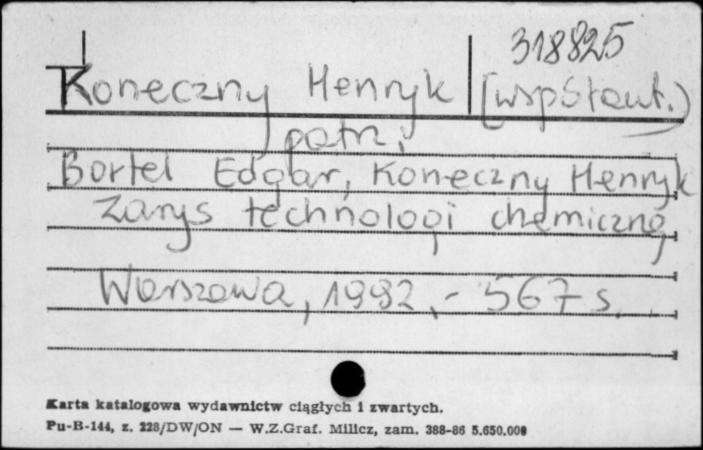 318825
Koneczny Henryk (współaut.)
patrz:
Bortel Edgar, Koneczny Henryk
Zarys technologi chemiczną
Warszawa, 1992,- 567 s.
Karta katalogowa wydawnictw ciągłych i zwartych.
Pu-B-144, z. 228/DW/ON — W.Z.Graf. Milicz, zam. 388-86 5.650.000